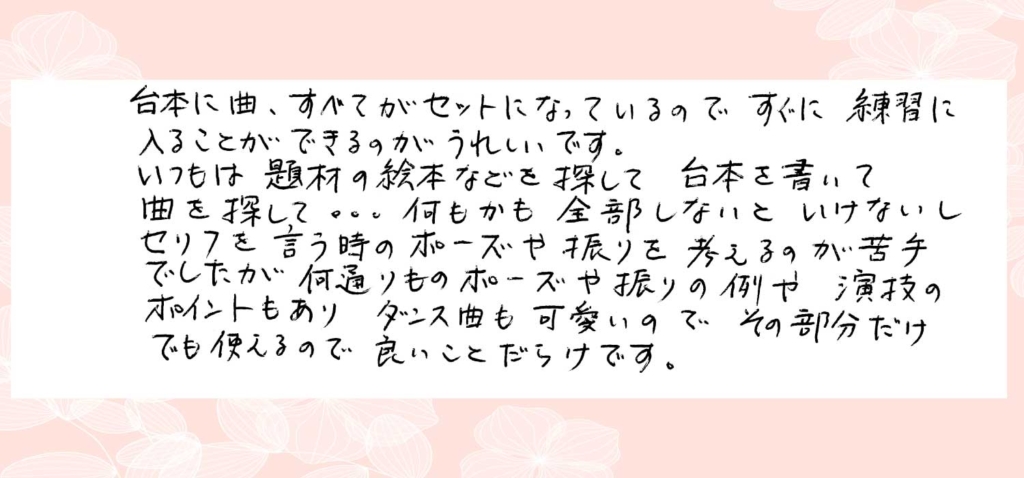 台本に曲、すべてがセットになっているので すぐに 練習に
入ることができるのがうれしいです。
いつもは 題材の絵本などを探して 台本を書いて
曲を探して。。。何もかも 全部しないと いけないし
セリフを言う時のポーズや振りを考えるのが苦手
でしたが 何通りものポーズや振りの例や 演技の
ポイントもあり ダンス曲も可愛いので その部分だけ
でも使えるので 良いことだらけです。